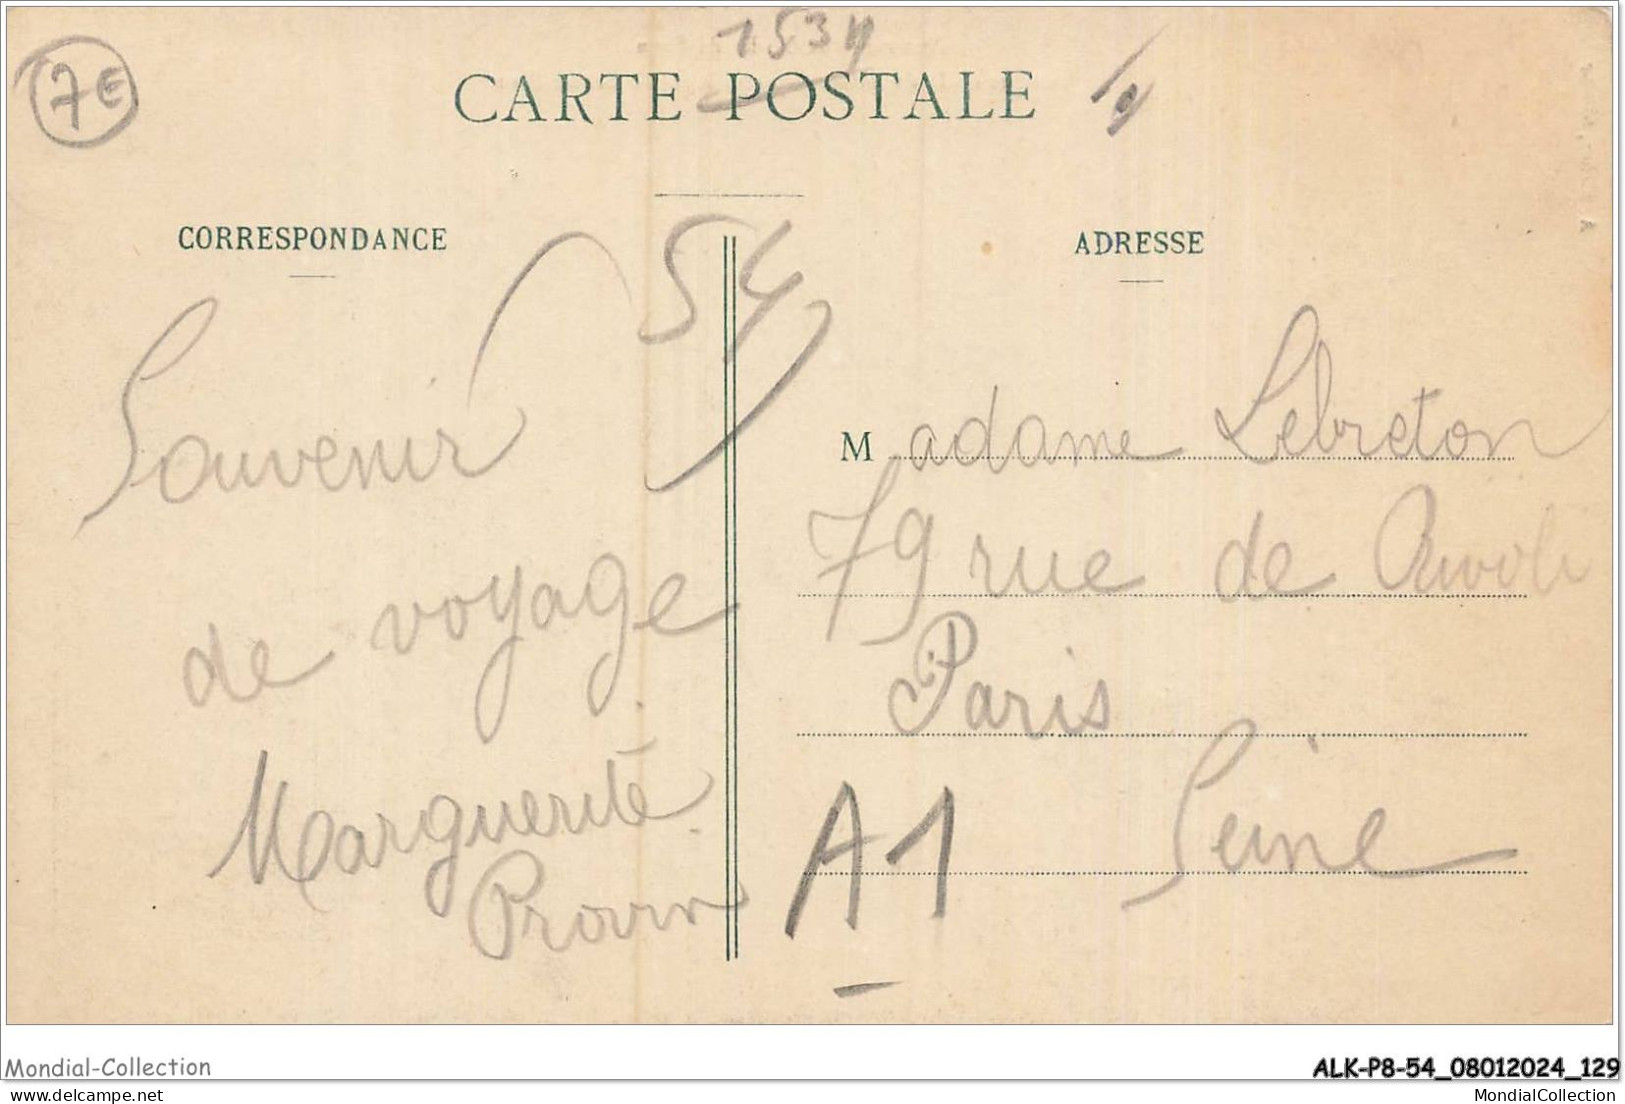 7€
1534
CARTE POSTALE
CORRESPONDANCE
54
Souvenir
de voyage
Marguerite
ADRESSE
Madame Lebreton
79 rue de Rivoli
Paris
Seine
A1
Mondial-Collection
ALK-P8-54_08012024_129
MondialCollection